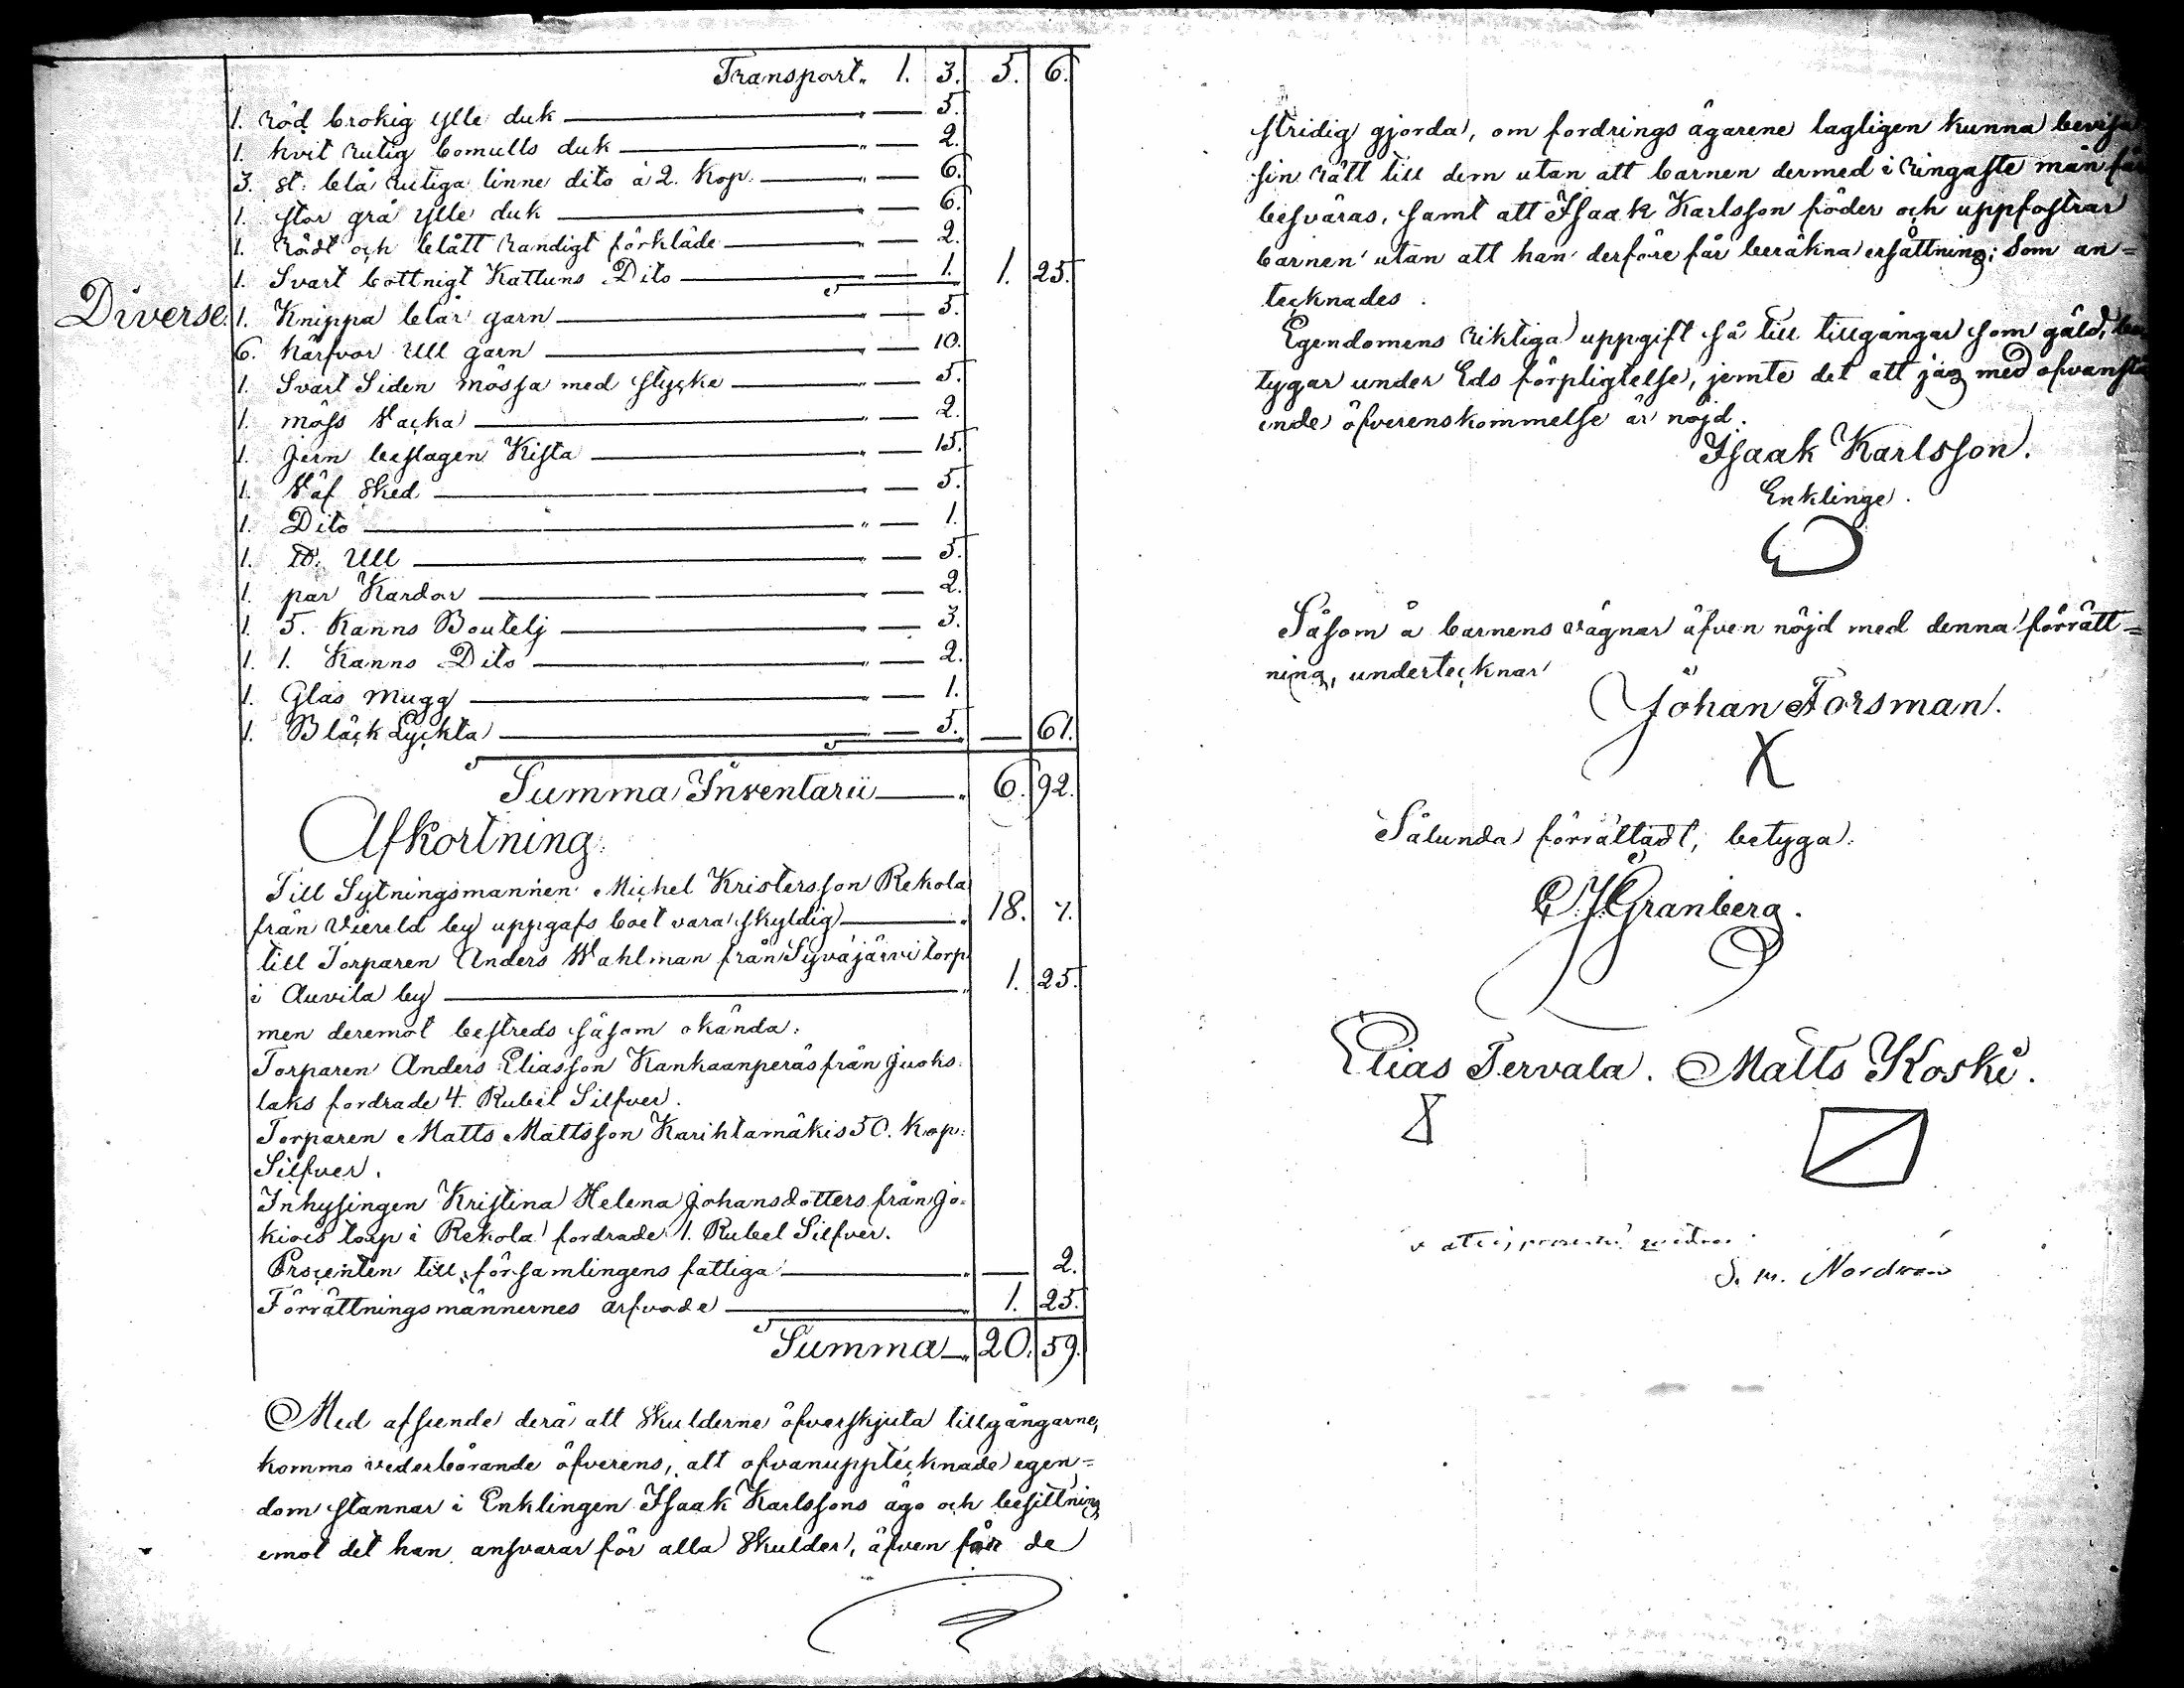 Transport „ 1. 3. 5. 6.
1. röd brokig ylle duk „ — 5.
1. hvit rutig bomulls duk „ — 2.
3. st: blå rutiga linne dito à 2. kop. „ — 6.
1. stor grå ylle duk „ — 6.
1. rödt och blått randigt förkläde „ — 2.
1. Svart bottnigt Kattuns Dito „ — 1. 1. 25.
Diverse. 1. Knippa blår garn „ — 5.
6. härfvor Ull garn „ — 10.
1. Svart Siden mössa med stycke „ — 5.
1. möss Wacka „ — 2.
1. jern beslagen Kista „ — 15.
1. Wäf sked „ — 5.
1. Dito „ — 1.
1. ℔. Ull „ — 5.
1. par Kardor „ — 2.
1. 5. Kanns Boutelj „ — 3.
1. 1. Kanns Dito „ — 2.
1. Glas mugg „ — 1.
1. Bläck Lyckta „ — 5. — 61.
Summa Inventarii „ 6. 92.
Afkortning.
Till Sytningsmannen Michel Kristersson Rekola
från Viereld by uppgafs boet vara skyldig „ 18. 7.
till Torparen Anders Wahlman från Syväjärvi torp
i Auvila by „ 1. 25.
men deremot bestreds såsom okända:
Torparen Anders Eliasson Kankaanperäs från Juoks
laks fordrade 4. Rubel Silfver.
Torparen Matts Mattsson Karihtamäkis 50. Kop:
Silfver.
Inhysingen Kristina Helena Johansdotters från Jo-
kiois torp i Rekola fordrade 1. Rubel Silfver.
Procenten till församlingens fattiga „ — 2.
Förrättningsmännernes arfvode „ 1. 25.
Summa „ 20. 59.
Med afseende derå att skulderne öfverskjuta tillgångarne,
komma vederbörande öfverens, att ofvanupptecknade egen=
dom stannar i Enklingen Isaak Karlssons ägo och besittning
emot det han ansvarar för alla skulder, äfven för de
stridig gjorda, om fordrings ägarene lagligen kunna bevisa
sin rätt till dem utan att barnen dermed i ringaste mån få
besväras, samt att Isaak Karlsson föder och uppfostrar
barnen utan att han derföre får beräkna ersättning; Som an=
tecknades.
Egendomens riktiga uppgift så till tillgångar som gäld, be
tygar under Eds förpligtelse, jemte det att jag med ofvanstå
ende öfverenskommelse är nöjd.
Isaak Karlsson.
Enklinge.
Såsom å barnens vägnar äfven nöjd med denna förrätt=
ning, undertecknar
Johan Forsman.
X
Sålunda förrättadt, betyga:
C. J. Granberg.
Elias Tervala. Matts Koski.